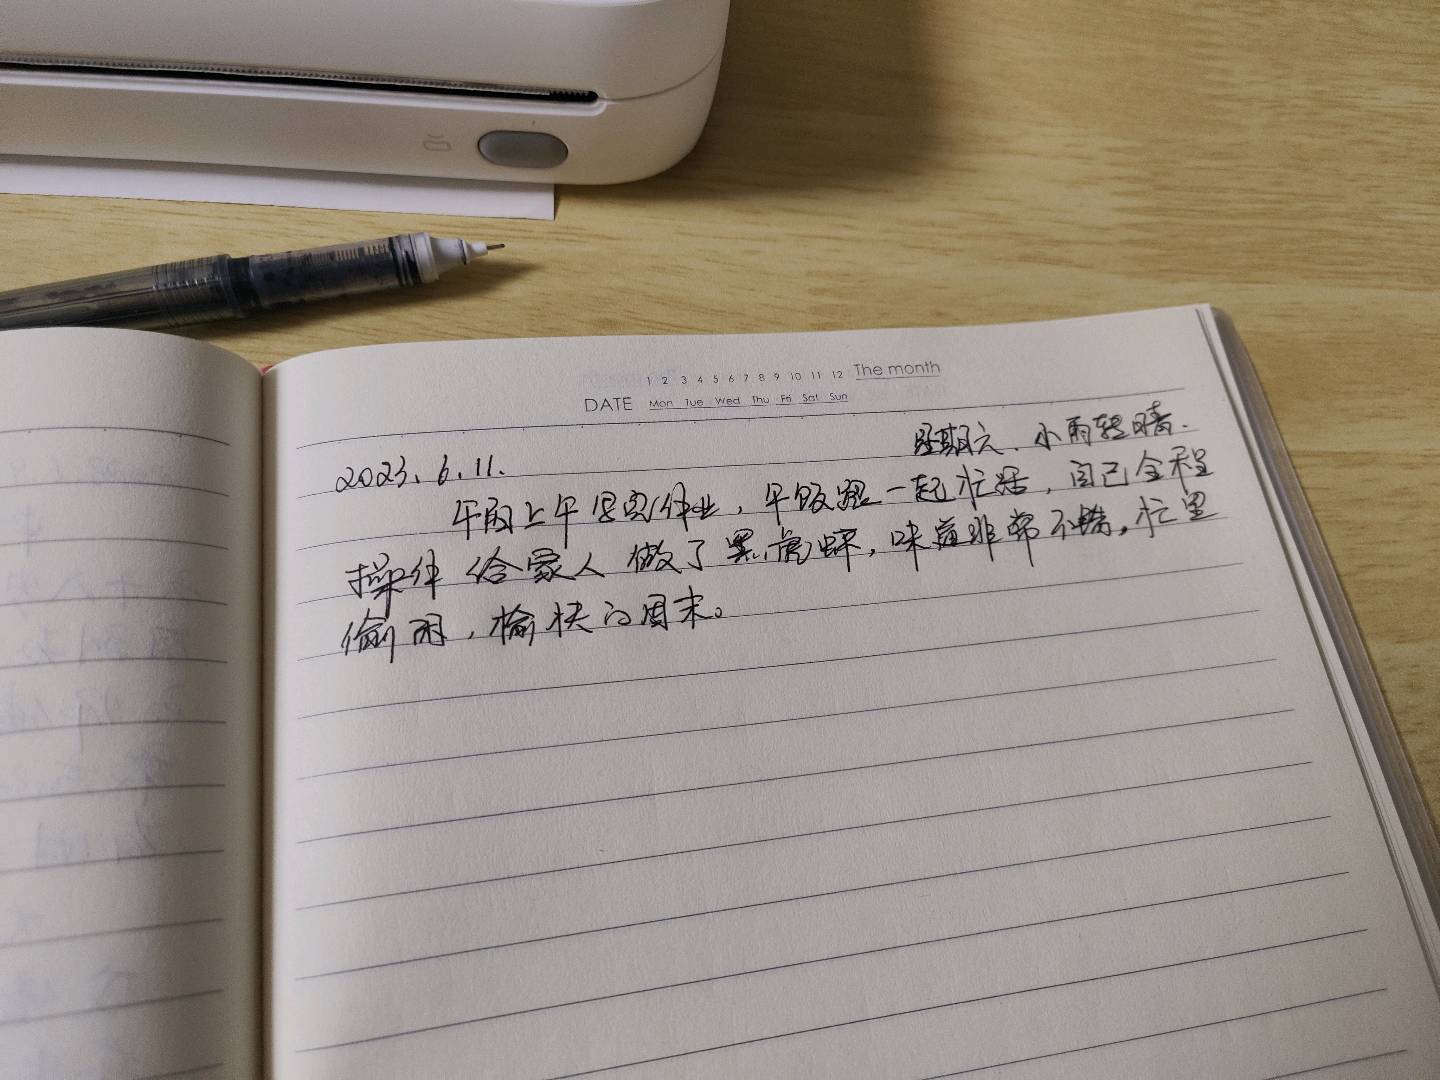 1 2 3 4 5 6 7 8 9 10 11 12 The month
DATE Mon Tue Wed Thu Fri Sat Sun
星期六、小雨转晴.
2023.6.11.
午间上午写完作业,午饭跟一起忙活,自己全程
操作给家人做了黑虎虾,味道非常不错,忙里
偷闲,愉快的周末。